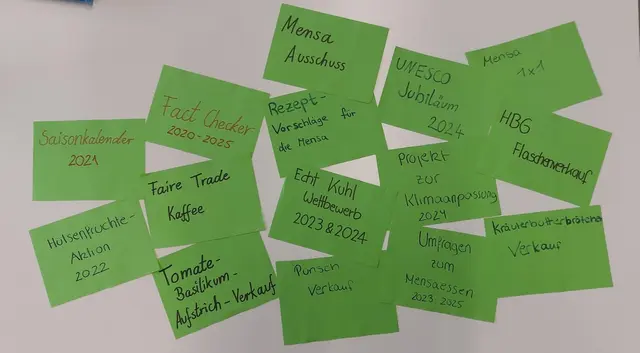 Mensa
Ausschuss
UNESCO
Jubiläum
2024
Mensa
1x1
Fact Checker
2020-2025
Rezept-
Vorschläge für
die Mensa
HBG
Flaschenverkauf
Saisonkalender
2021
Faire Trade
Kaffee
Echt Kuhl
Wettbewerb
2023 & 2024
Projekt
zur
Klimaanpassung
2024
Hülsenfrüchte-
Aktion
2022
Tomate-
Basilikum-
Aufstrich-Verkauf
Punsch
Verkauf
Umfragen
zum
Mensaessen
2023-2025
Kräuterbutterbrötchen
Verkauf